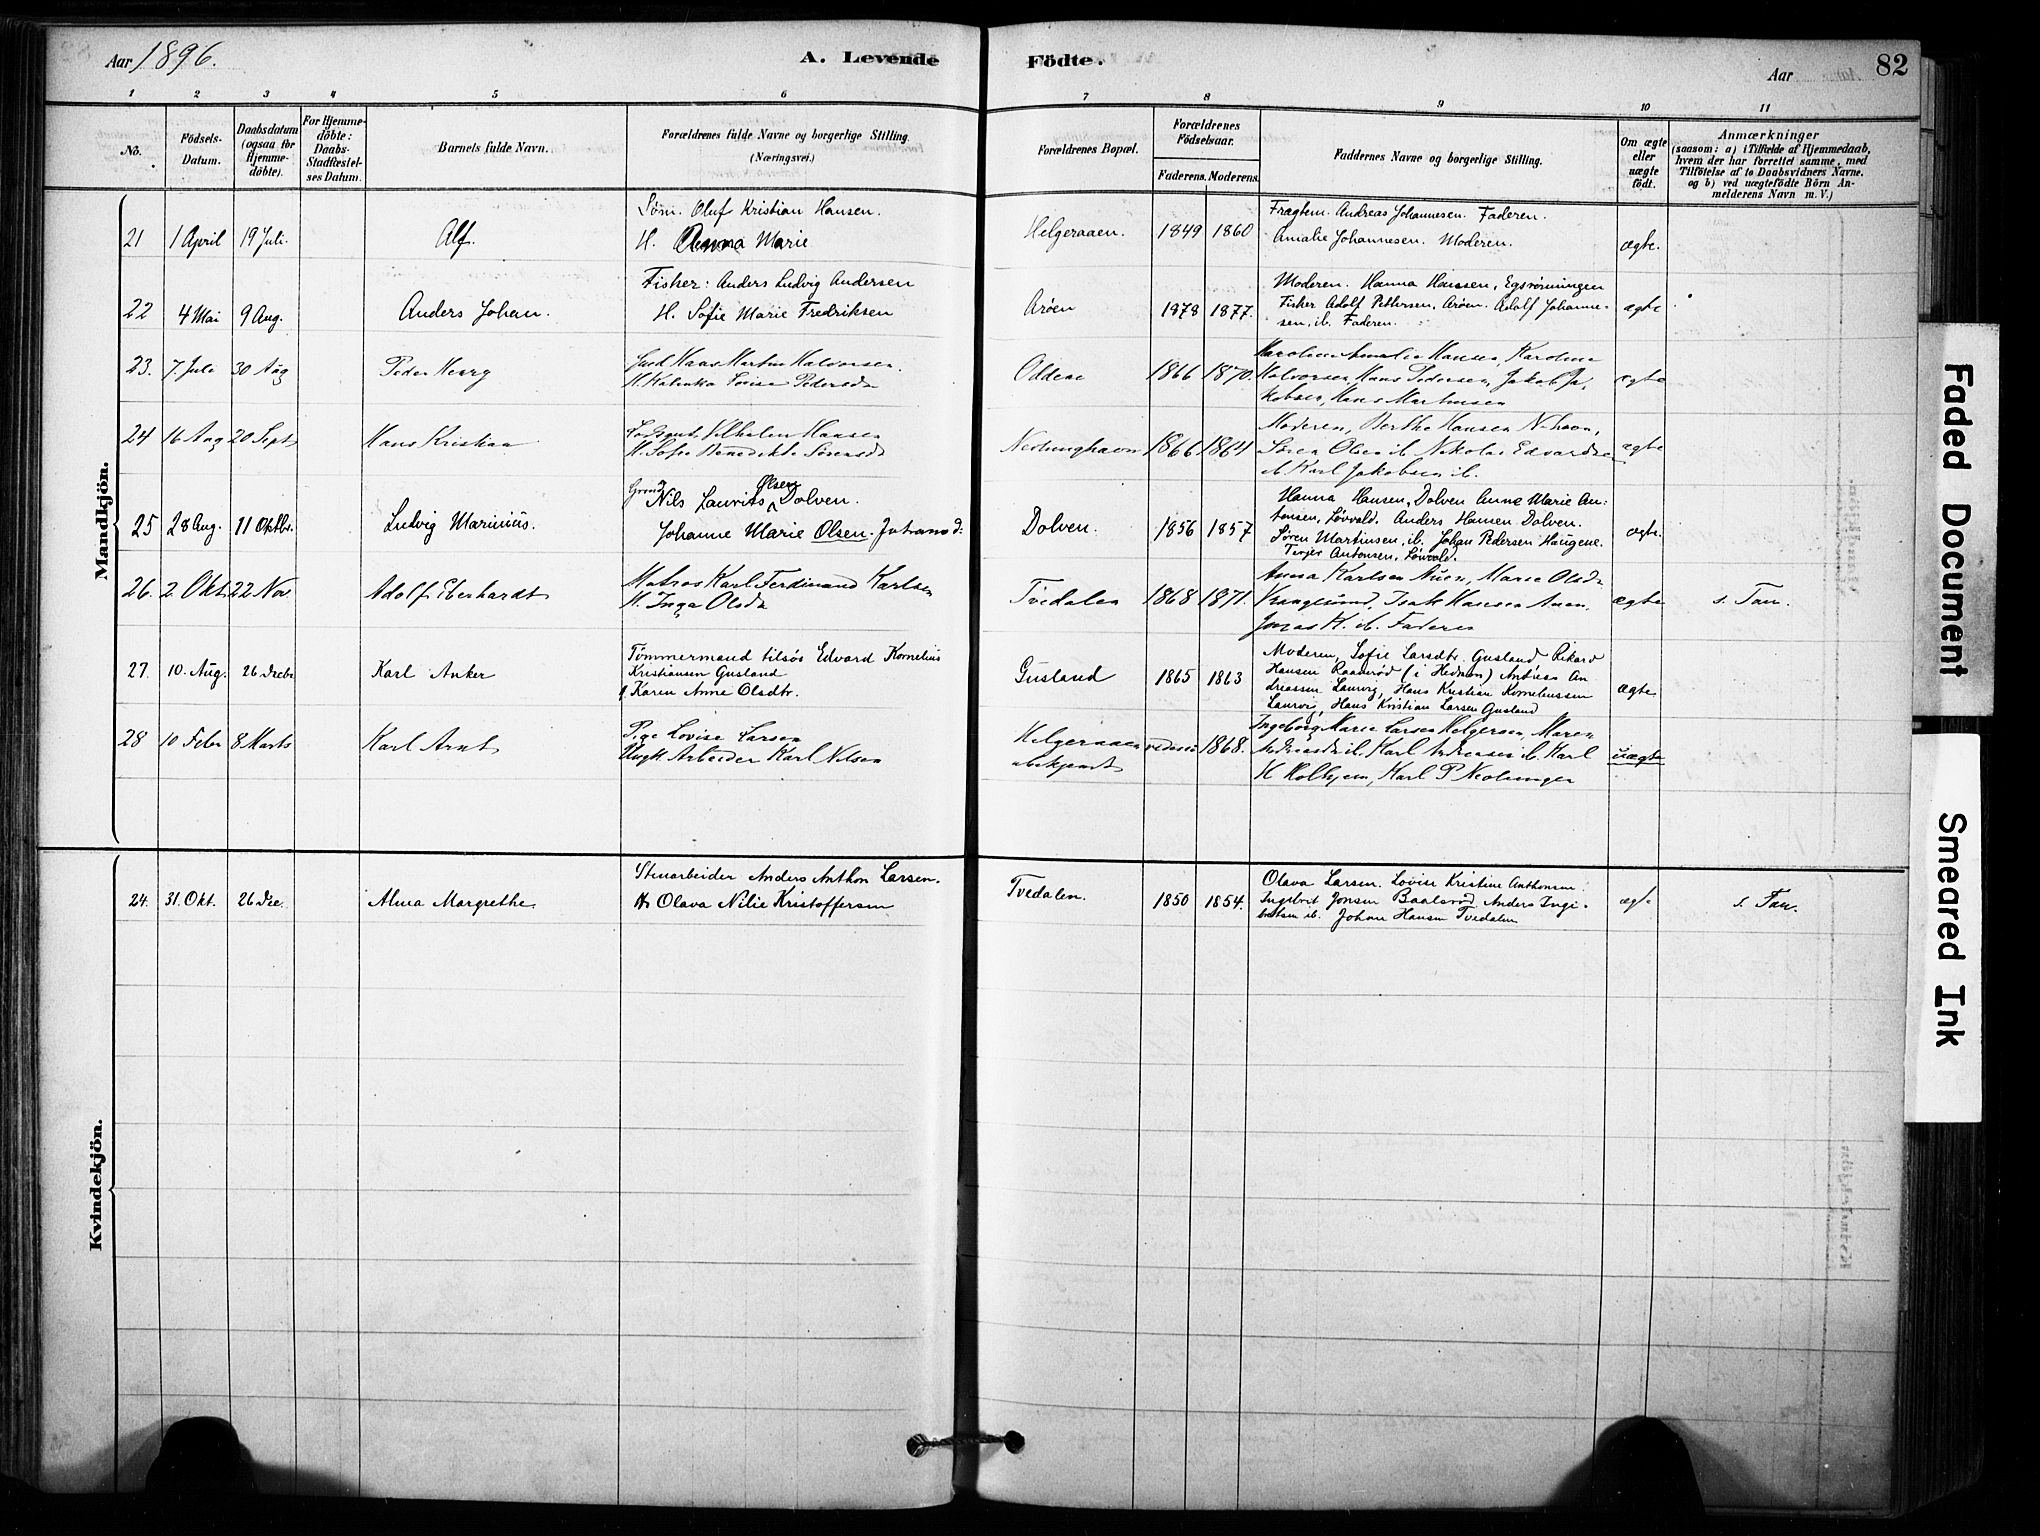 Aar 1896.
A. Levende
Födte.
Aar
82
1 2 3 4 5 6 7 8 9 10 11
No.
Födsels-Datum.
Daabsdatum (ogsaa for Hjemme-döbte).
For Hjemme-döbte: Daabs-Stadfæstel-ses Datum.
Barnets fulde Navn.
Forældrenes fulde Navne og borgerlige Stilling.
(Næringsvei.)
Forældrenes Bopæl.
Forældrenes Födselsaar.
Faderens. Moderens.
Faddernes Navne og borgerlige Stilling.
Om ægte eller uægte födt.
Anmærkninger
(saasom: a) i Tilfælde af Hjemmedaab,
hvem der har forrettet samme, med
Tilföielse af to Daabsvidners Navne.
og b) ved uægtefödte Börn An-
melderens Navn m. V.)
Mandkjön.
Söm. Oluf Kristian Hansen.
Fragtem. Andreas Johannesen. Faderen.
21 1 April 19 Juli. Alf. H. Anna Marie Helgeraaen. 1849 1860 Amalie Johannesen. Moderen. ægte.
Fisker: Anders Ludvig Andersen
Moderen. Hanna Hansen,
22 4 Mai 9 Aug. Anders Johan. H. Sofie Marie Fredriksen Aröen 1878 1877. Fisker Adolf Pettersen, Aröen. Adolf Johanne-
sen, ib. Faderen.
ægte
23. 7 Juli 30 Aug Peder Henry Hans Martin Halvorsen. 1866 1870. Amalie Hansen, Karoline
Halvorsen, Hans Pedersen, Jakob Ja-
kobsen, Hans Martinsen
ægte
24 16 Aug 20 Sept Hans Kristian Vilhelm Hansen
H. Sofie Benedikte Nevlunghavn 1866 1864 Moderen, Berthe Hansen N.havn,
Sören Olsen ib. Nikolai
ib. Karl Jakobsen ib.
ægte
Nils Laurits Olsen Dolven.
25 28 Aug. 11 Oktbr. Ludvig Marinius. Johanne Marie Olsen. Dolven. 1856 1857 Hanna Hansen, Dolven Anne Marie An-
tonsen, Lövvald. Anders Hansen Dolven.
Sören Martinsen, ib. Johan Pedersen Haugene.
Terjer Antonsen, Lövvald.
ægte.
26. 2 Okt 22 Nov Adolf Eberhardt Matros Karl Ferdinand Karlsen
H. Inga Olsdr Tvedalen 1868 1871. Anna Karlsen Auen, Marie Olsdr
Isak Hansen Auen,
Faderen
ægte s. Tau.
27. 10. Aug. 26 Decbr Karl Anker Tömmermand tilsös Edvard Kornelius
Kristiansen Gusland
Karen Anne Olsdtr. Gusland 1865 1863 Moderen, Sofie Larsdtr. Gusland Rikard
Hansen (i Hedrum) Andreas An-
dreassen Laurvig, Hans Kristian Korneliussen
Laurvig, Hans Kristian Larsen Gusland
ægte
28 10 Febr 8 Marts Karl Arnt Pige Lovise Larsen
Ungk. Arbeider Karl Nilsen Helgeraaen
ubekjent 1868. Ingeborg Marie Larsen Helgeraa, Maren
ib. Karl Andreasen ib. Karl
Karl P Nevlungen
uægte
Kvindekjön.
24. 31. Okt. 26 Dec. Alma Margrethe Stenarbeider Anders Anthon Larsen.
H. Olava Nilie Kristoffersen Tvedalen. 1850 1854. Olava Larsen. Lovise Kristine Anthonsen.
Ingebrit Jonsen Anders Ingi-
britsen ib. Johan Hansen Tvedalen
ægte s. Tau.
Faded Document
Smeared Ink